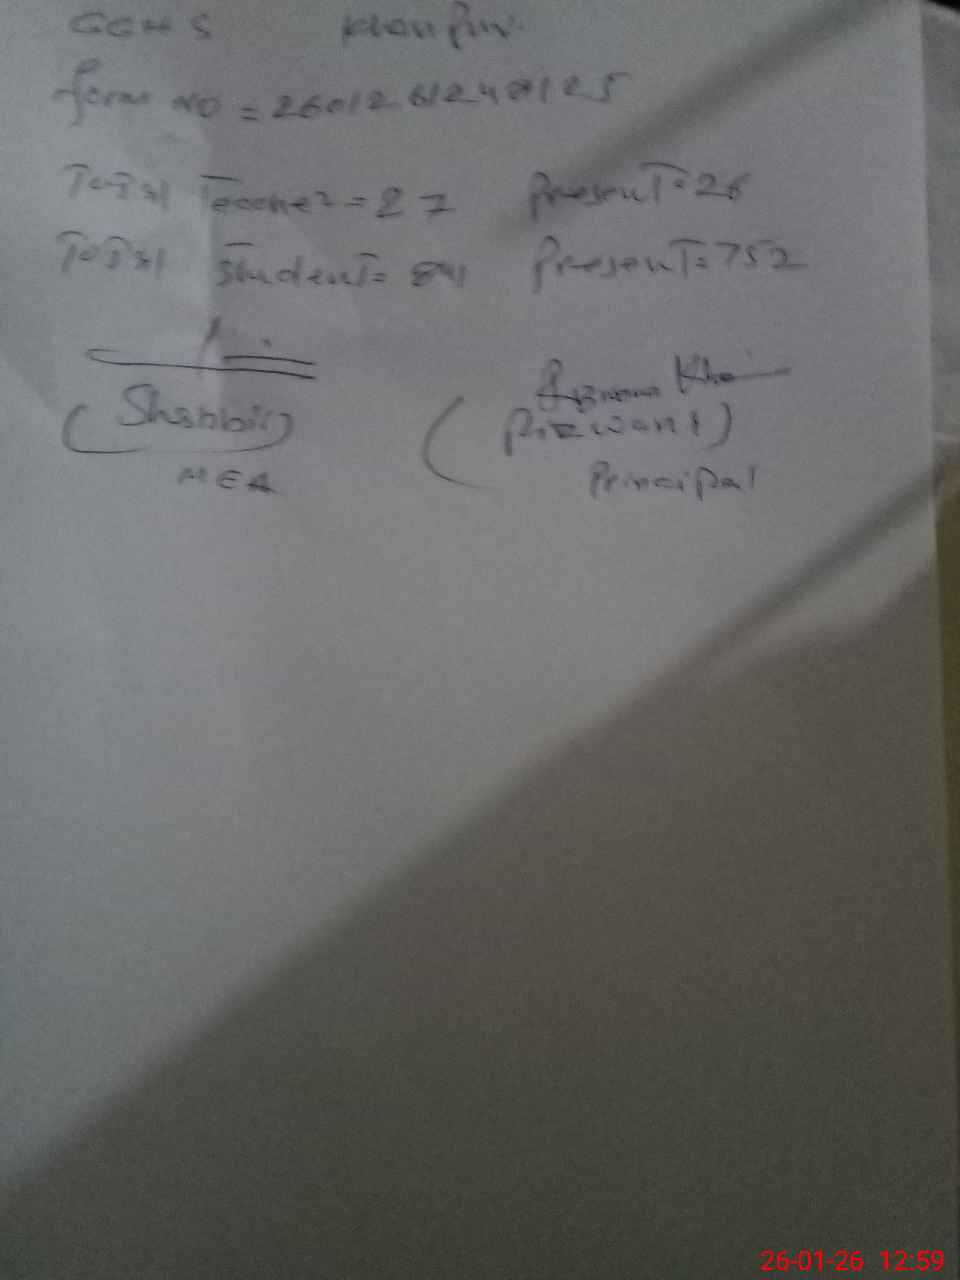 GGHS Khanpur
form NO = 2601261248125
Total Teacher = 27 Present = 26
Total Student = 841 Present = 752
(Shabbir) Khan
MEA (Rizwani)
Principal
26-01-26 12:59